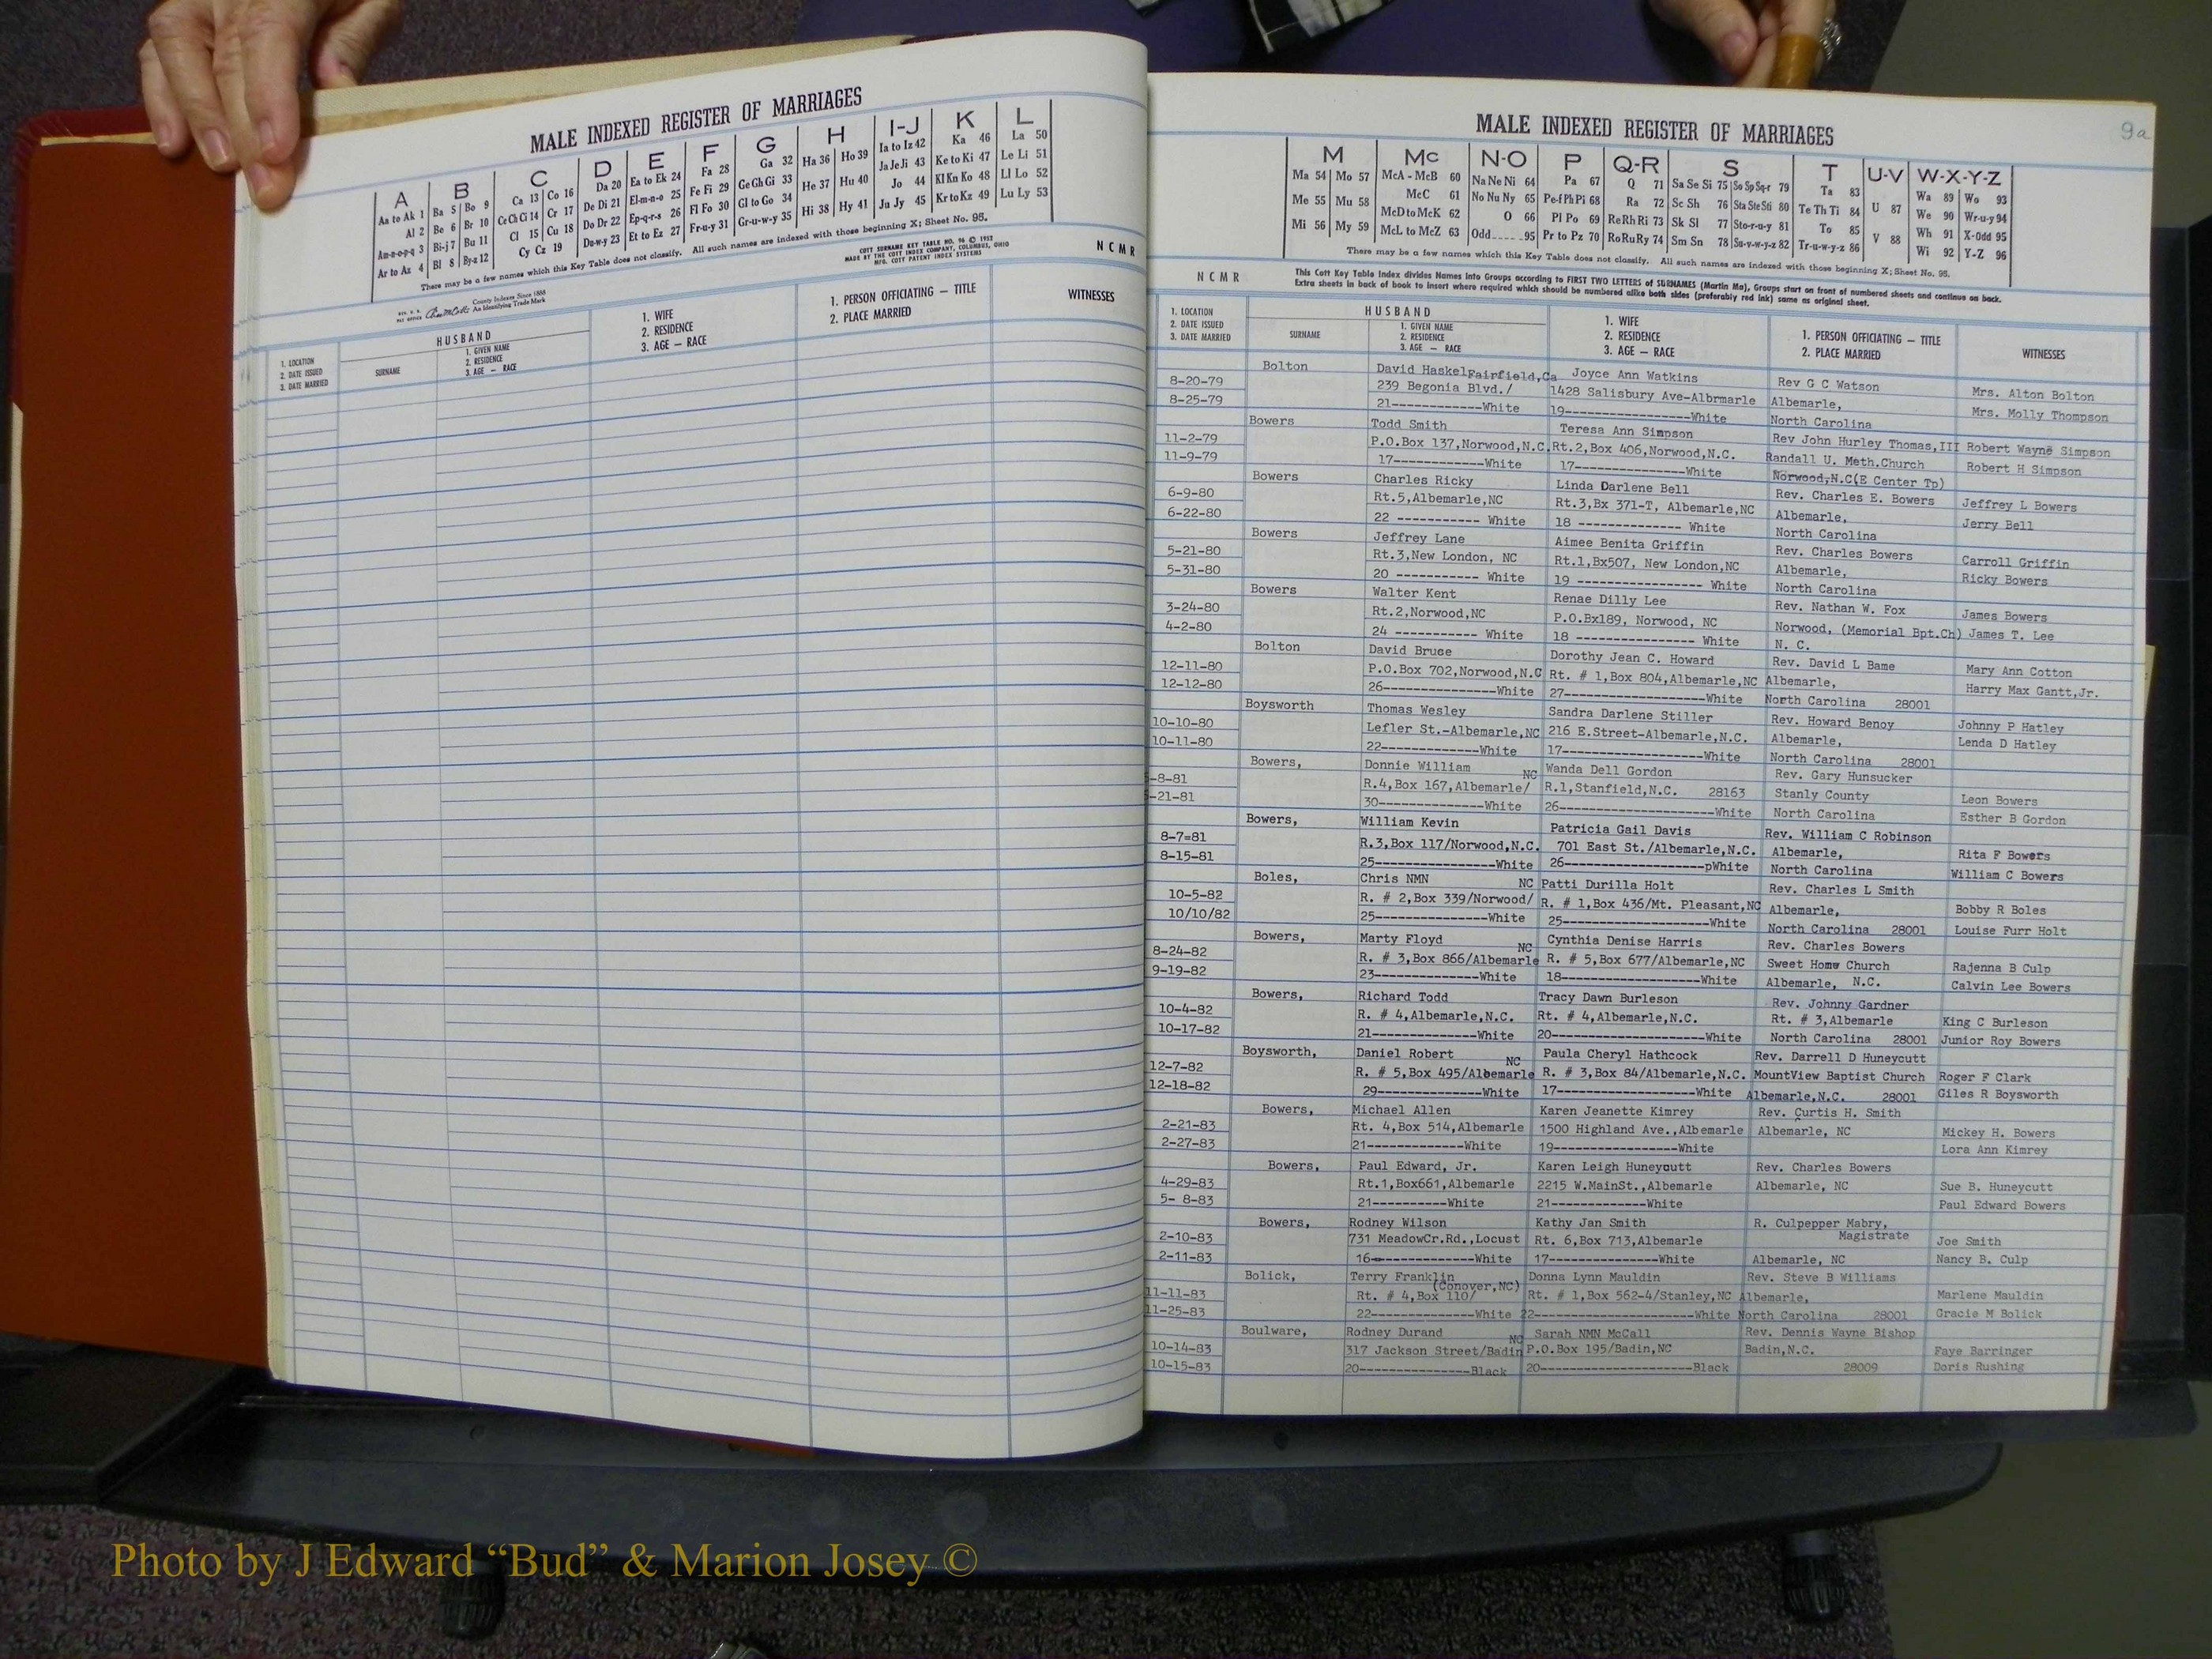 MALE INDEXED REGISTER OF MARRIAGES
A B C D E F G H I-J K L
Aa to Ak 1 Ba 5 Bo 9 Ca 13 Co 16 Da 20 Ea to Ek 24 Fa 28 Ga 32 Ha 36 Ho 39 Ia to Iz 42 Ka 46 La 50
Al 2 Be 6 Br 10 Ce Ch Ci 14 Cr 17 De Di 21 El-m-n-o 25 Fe Fi 29 Ge Gh Gi 33 He 37 Hu 40 Ja Je Ji 43 Ke to Ki 47 Le Li 51
Am-n-o-p-q 3 Bi-j 7 Bu 11 Cl 15 Cu 18 Do Dr 22 Ep-q-r-s 26 Fl Fo 30 Gl to Go 34 Hi 38 Hy 41 Jo 44 Kl Kn Ko 48 Ll Lo 52
Ar to Az 4 Bl 8 By-z 12 Cy Cz 19 Du-w-y 23 Et to Ez 27 Fr-u-y 31 Gr-u-w-y 35 Ju Jy 45 Kr to Kz 49 Lu Ly 53
There may be a few names which this Key Table does not classify. All such names are indexed with those beginning X; Sheet No. 95.
County Indexes Since 1888
An Identifying Trade Mark
COTT SURNAME KEY TABLE NO. 96 © 1952
MADE BY THE COTT INDEX COMPANY, COLUMBUS, OHIO
MFG. COTT PATENT INDEX SYSTEMS
N C M R
1. LOCATION
2. DATE ISSUED
3. DATE MARRIED
HUSBAND
SURNAME
1. GIVEN NAME
2. RESIDENCE
3. AGE — RACE
1. WIFE
2. RESIDENCE
3. AGE — RACE
1. PERSON OFFICIATING — TITLE
2. PLACE MARRIED
WITNESSES
9a
MALE INDEXED REGISTER OF MARRIAGES
M Mc N-O P Q-R S T U-V W-X-Y-Z
Ma 54 Mo 57 McA - McB 60 Na Ne Ni 64 Pa 67 Q 71 Sa Se Si 75 So Sp Sq-r 79 Ta 83 U 87 Wa 89 Wo 93
Me 55 Mu 58 McC 61 No Nu Ny 65 Pe-f Ph Pi 68 Ra 72 Sc Sh 76 Sta Ste Sti 80 Te Th Ti 84 V 88 We 90 Wr-u-y 94
Mi 56 My 59 McD to McK 62 O 66 Pl Po 69 Re Rh Ri 73 Sk Sl 77 Sto-r-u-y 81 To 85 Wh 91 X-Odd 95
McL to McZ 63 Odd 95 Pr to Pz 70 Ro Ru Ry 74 Sm Sn 78 Su-v-w-y-z 82 Tr-u-w-y-z 86 Wi 92 Y-Z 96
There may be a few names which this Key Table does not classify. All such names are indexed with those beginning X; Sheet No. 95.
N C M R
This Cott Key Table Index divides Names Into Groups according to FIRST TWO LETTERS of SURNAMES (Martin Ma), Groups start on front of numbered sheets and continue on back.
Extra sheets in back of book to insert where required which should be numbered alike both sides (preferably red ink) same as original sheet.
1. LOCATION
2. DATE ISSUED
3. DATE MARRIED
HUSBAND
SURNAME
1. GIVEN NAME
2. RESIDENCE
3. AGE — RACE
1. WIFE
2. RESIDENCE
3. AGE — RACE
1. PERSON OFFICIATING — TITLE
2. PLACE MARRIED
WITNESSES
Bolton David Haskel Fairfield,Ca Joyce Ann Watkins Rev G C Watson Mrs. Alton Bolton
8-20-79 239 Begonia Blvd./ 1428 Salisbury Ave-Albrmarle Albemarle, Mrs. Molly Thompson
8-25-79 21------------White 19----------------White North Carolina
Bowers Todd Smith Teresa Ann Simpson Rev John Hurley Thomas,III Robert Wayne Simpson
11-2-79 P.O.Box 137,Norwood,N.C. Rt.2,Box 406,Norwood,N.C. Randall U. Meth.Church Robert H Simpson
11-9-79 17------------White 17--------------White Norwood,N.C(E Center Tp)
Bowers Charles Ricky Linda Darlene Bell Rev. Charles E. Bowers Jeffrey L Bowers
6-9-80 Rt.5,Albemarle,NC Rt.3,Bx 371-T, Albemarle,NC Albemarle, Jerry Bell
6-22-80 22 ----------- White 18 ------------- White North Carolina
Bowers Jeffrey Lane Aimee Benita Griffin Rev. Charles Bowers Carroll Griffin
5-21-80 Rt.3,New London, NC Rt.1,Bx507, New London,NC Albemarle, Ricky Bowers
5-31-80 20 ----------- White 19 ---------------- White North Carolina
Bowers Walter Kent Renae Dilly Lee Rev. Nathan W. Fox James Bowers
3-24-80 Rt.2,Norwood,NC P.O.Bx189, Norwood, NC Norwood, (Memorial Bpt.Ch) James T. Lee
4-2-80 24 ----------- White 18 --------------- White N. C.
Bolton David Bruce Dorothy Jean C. Howard Rev. David L Bame Mary Ann Cotton
12-11-80 P.O.Box 702,Norwood,N.C Rt. # 1,Box 804,Albemarle,NC Albemarle, Harry Max Gantt,Jr.
12-12-80 26--------------White 27------------------White North Carolina 28001
Boysworth Thomas Wesley Sandra Darlene Stiller Rev. Howard Benoy Johnny P Hatley
10-10-80 Lefler St.-Albemarle,NC 216 E.Street-Albemarle,N.C. Albemarle, Lenda D Hatley
10-11-80 22-------------White 17------------------White North Carolina 28001
Bowers, Donnie William NC Wanda Dell Gordon Rev. Gary Hunsucker
-8-81 R.4,Box 167,Albemarle/ R.1,Stanfield,N.C. 28163 Stanly County Leon Bowers
-21-81 30--------------White 26--------------------White North Carolina Esther B Gordon
Bowers, William Kevin Patricia Gail Davis Rev. William C Robinson
8-7=81 R.3,Box 117/Norwood,N.C. 701 East St./Albemarle,N.C. Albemarle, Rita F Bowers
8-15-81 25----------------White 26-------------------pWhite North Carolina William C Bowers
Boles, Chris NMN NC Patti Durilla Holt Rev. Charles L Smith
10-5-82 R. # 2,Box 339/Norwood/ R. # 1,Box 436/Mt. Pleasant,NC Albemarle, Bobby R Boles
10/10/82 25---------------White 25-------------------White North Carolina 28001 Louise Furr Holt
Bowers, Marty Floyd NC Cynthia Denise Harris Rev. Charles Bowers
8-24-82 R. # 3,Box 866/Albemarle R. # 5,Box 677/Albemarle,NC Sweet Home Church Rajenna B Culp
9-19-82 23--------------White 18------------------White Albemarle, N.C. Calvin Lee Bowers
Bowers, Richard Todd Tracy Dawn Burleson Rev. Johnny Gardner
10-4-82 R. # 4,Albemarle,N.C. Rt. # 4,Albemarle,N.C. Rt. # 3,Albemarle King C Burleson
10-17-82 21--------------White 20--------------------White North Carolina 28001 Junior Roy Bowers
Boysworth, Daniel Robert NC Paula Cheryl Hathcock Rev. Darrell D Huneycutt
12-7-82 R. # 5,Box 495/Albemarle R. # 3,Box 84/Albemarle,N.C. MountView Baptist Church Roger F Clark
12-18-82 29--------------White 17------------------White Albemarle,N.C. 28001 Giles R Boysworth
Bowers, Michael Allen Karen Jeanette Kimrey Rev. Curtis H. Smith
2-21-83 Rt. 4,Box 514,Albemarle 1500 Highland Ave.,Albemarle Albemarle, NC Mickey H. Bowers
2-27-83 21-------------White 19---------------White Lora Ann Kimrey
Bowers, Paul Edward, Jr. Karen Leigh Huneycutt Rev. Charles Bowers
4-29-83 Rt.1,Box661,Albemarle 2215 W.MainSt.,Albemarle Albemarle, NC Sue B. Huneycutt
5- 8-83 21-----------White 21-------------White Paul Edward Bowers
Bowers, Rodney Wilson Kathy Jan Smith R. Culpepper Mabry,
2-10-83 731 MeadowCr.Rd.,Locust Rt. 6,Box 713,Albemarle Magistrate Joe Smith
2-11-83 16-------------White 17---------------White Albemarle, NC Nancy B. Culp
Bolick, Terry Franklin (Conover,NC) Donna Lynn Mauldin Rev. Steve B Williams
11-11-83 Rt. # 4,Box 110/ Rt. # 1,Box 562-4/Stanley,NC Albemarle, Marlene Mauldin
11-25-83 22---------------White 22--------------------White North Carolina 28001 Gracie M Bolick
Boulware, Rodney Durand NC Sarah NMN McCall Rev. Dennis Wayne Bishop
10-14-83 317 Jackson Street/Badin P.O.Box 195/Badin,NC Badin,N.C. Faye Barringer
10-15-83 20----------------Black 20--------------------Black 28009 Doris Rushing
Photo by J Edward “Bud” & Marion Josey ©